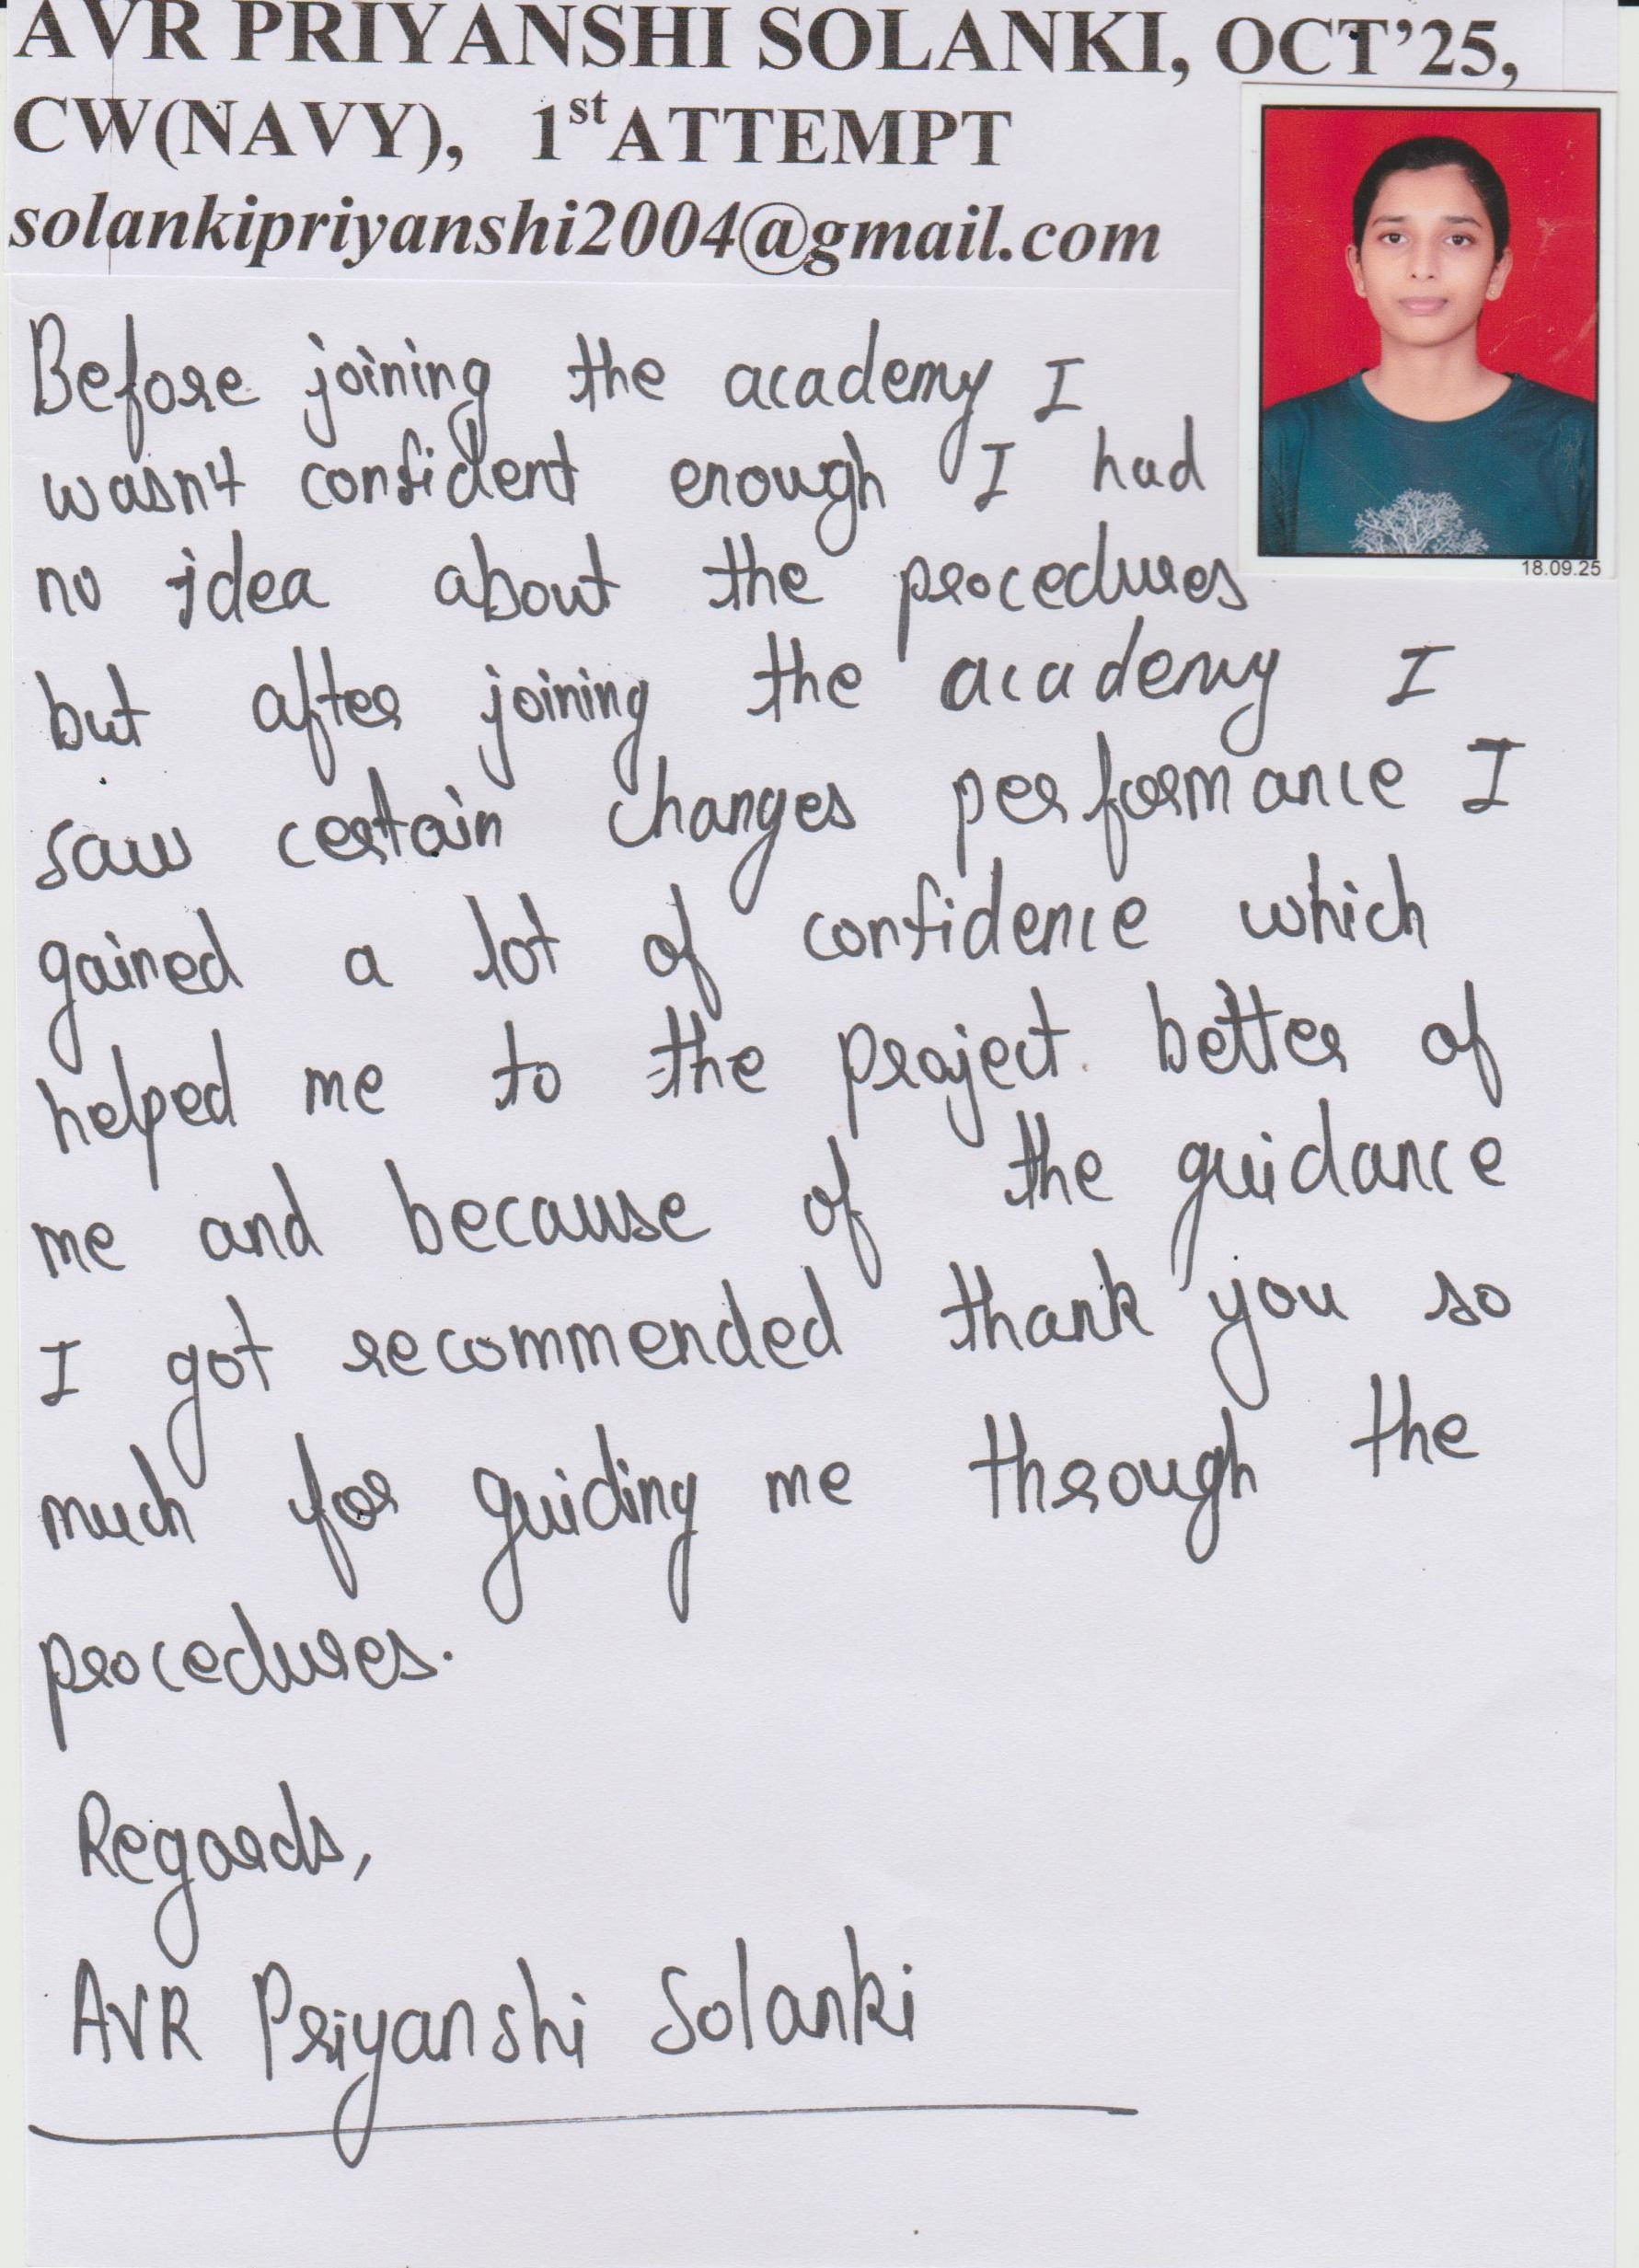 AVR PRIYANSHI SOLANKI, OCT'25,
CW(NAVY), 1st ATTEMPT
solankipriyanshi2004@gmail.com
18.09.25
Before joining the academy I
wasn't confident enough I had
no idea about the procedures
but after joining the academy I
saw certain changes performance I
gained a lot of confidence which
helped me to the project. better of
me and because of the guidance
I got recommended thank you so
much for guiding me through the
procedures.
Regards,
AVR Priyanshi Solanki